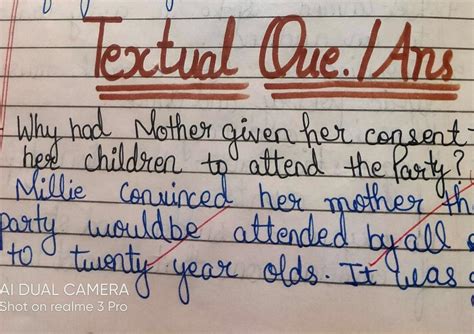 Textual Que./Ans
Why had Mother given her consent
her children to attend the Party?
Millie convinced her mother th
party wouldbe attended by all
to twenty year olds. It was
AI DUAL CAMERA
Shot on realme 3 Pro